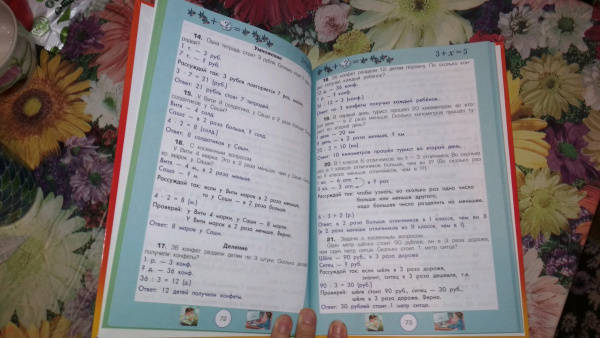 Умножение
14. Одна тетрадь стоит 3 рубля.
1 т. — 3 руб.
7 т. — ? руб.
Рассуждай так: 3 рубля повторяется 7 раз,
3 · 7 = 21 (руб.)
Ответ: 21 рубль стоят 7 тетрадей.
15. У Вити 4 солдатика, у Саши в 2 раза
Вити — 4 солд.
Саши — в 2 раза больше, ? солд.
4 · 2 = 8 (солд.)
Ответ: 8 солдатиков у Саши.
16. С косвенным вопросом.
У Вити 4 марки. Это в 2 раза меньше, чем у Саши.
марок у Саши?
Витя — 4 м., в 2 раза меньше
Саша — ? м.
Рассуждай так: если у Вити марок в 2 раза меньше,
то у Саши в 2 раза больше.
4 · 2 = 8 (м.)
Проверяй: у Вити 4 марки, у Саши — 8 марок.
У Вити марок в 2 раза меньше. Верно.
Ответ: 8 марок у Саши.
Деление
17. 36 конфет раздали детям по 3 штуки. Сколько детей
получили конфеты?
1 р. — 3 конф.
? д. — 36 конф.
36 : 3 = 12 (д.)
Ответ: 12 детей получили конфеты.
72
3 + x = 5
18. 36 конфет раздали 12 детям поровну. По сколько кон-
фет получил каждый ребёнок?
12 д. — 36 конф.
1 р. — ? конф.
36 : 12 = 3 (конф.)
Ответ: по 3 конфеты получил каждый ребёнок.
19. В первый день турист прошёл 20 километров, во вто-
рой день — в 2 раза меньше. Сколько километров прошёл ту-
рист во второй день?
1 день — 20 км
2 день — в 2 раза меньше, ? км
20 : 2 = 10 (км)
Ответ: 10 километров прошёл турист во второй день.
20. В I классе 6 отличников, во II — 3 отличника. Во сколько
I кл. — 6 отл.
в ? раз
Рассуждай так: чтобы узнать, во сколько раз одно число
больше или меньше другого,
надо большее число разделить на меньшее.
6 : 3 = 2 (р.)
Ответ: в 2 раза больше отличников в I классе, чем во II
(в 2 раза меньше отличников во II классе, чем в I).
21. Задача с косвенным вопросом.
Один метр шёлка стоит 90 рублей, он в 3 раза дороже,
чем один метр ситца. Сколько стоит 1 метр ситца?
Шёлк — 90 руб., в 3 раза дороже
Ситец — ? руб.
Рассуждай так: если шёлк в 3 раза дороже,
значит, ситец в 3 раза дешевле, т.е.
90 : 3 = 30 (руб.)
Проверяй: шёлк стоит 90 руб., ситец — 30 руб.,
шёлк в 3 раза дороже. Верно.
Ответ: 30 рублей стоит 1 метр ситца.
73